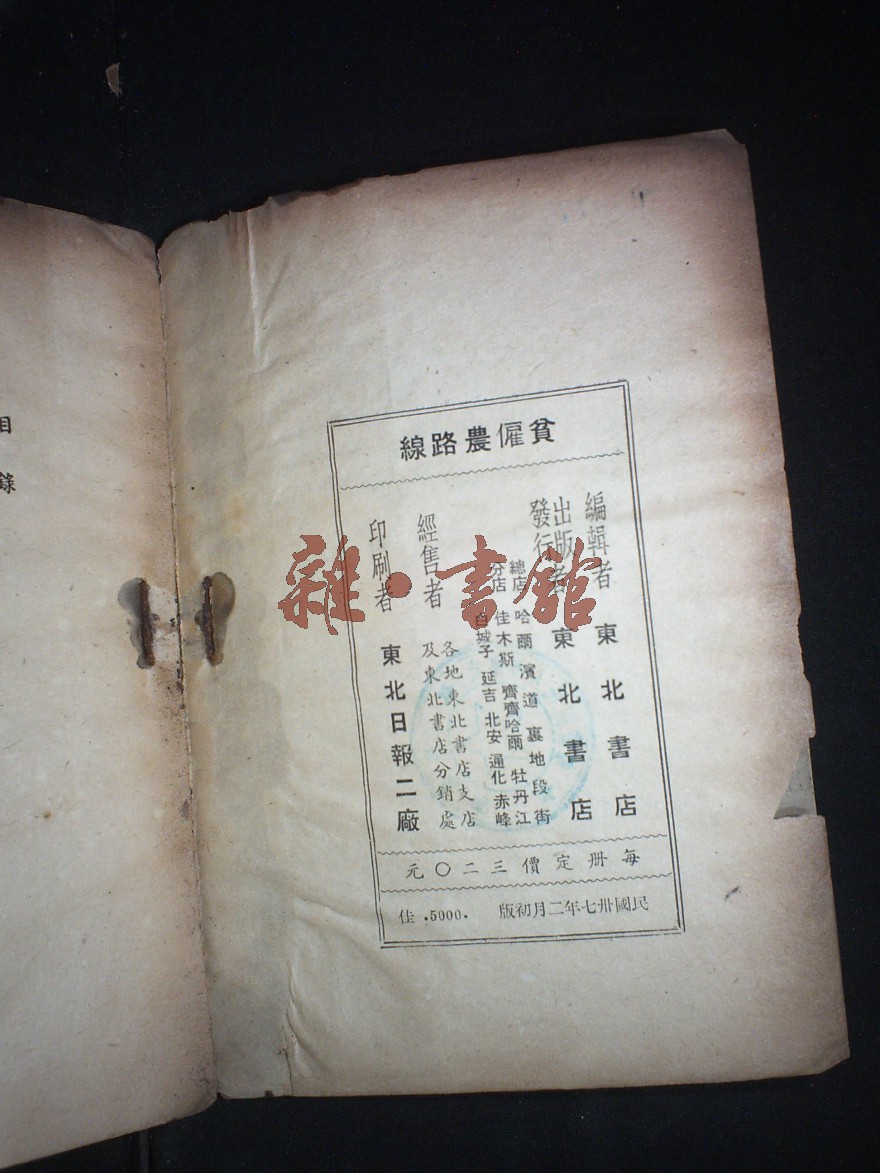 貧僱農路線
編輯者 東北書店
出版者
發行者 東北書店
總店 哈爾濱道裏地段街
分店 佳木斯 齊齊哈爾 牡丹江
白城子 延吉 北安 通化 赤峰
經售者 各地東北書店支店
及東北書店分銷處
印刷者 東北日報二廠
每册定價三二〇元
民國卅七年二月初版 .5000. 佳
目錄
雜·書館